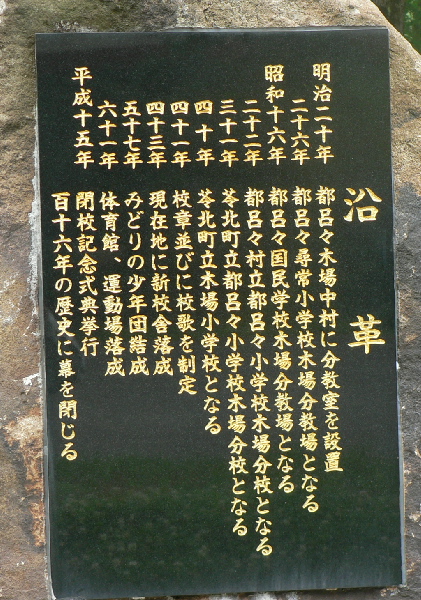 沿革
明治二十年 都呂々木場中村に分教室を設置
二六年 都呂々尋常小学校木場分教場となる
昭和十六年 都呂々国民学校木場分教場となる
二二年 都呂々村立都呂々小学校木場分校となる
三一年 苓北町立都呂々小学校木場分校となる
四十年 苓北町立木場小学校となる
四一年 校章並びに校歌を制定
四三年 現在地に新校舎落成
五七年 みどりの少年団結成
六一年 体育館、運動場落成
平成十五年 閉校記念式典挙行
百十六年の歴史に幕を閉じる